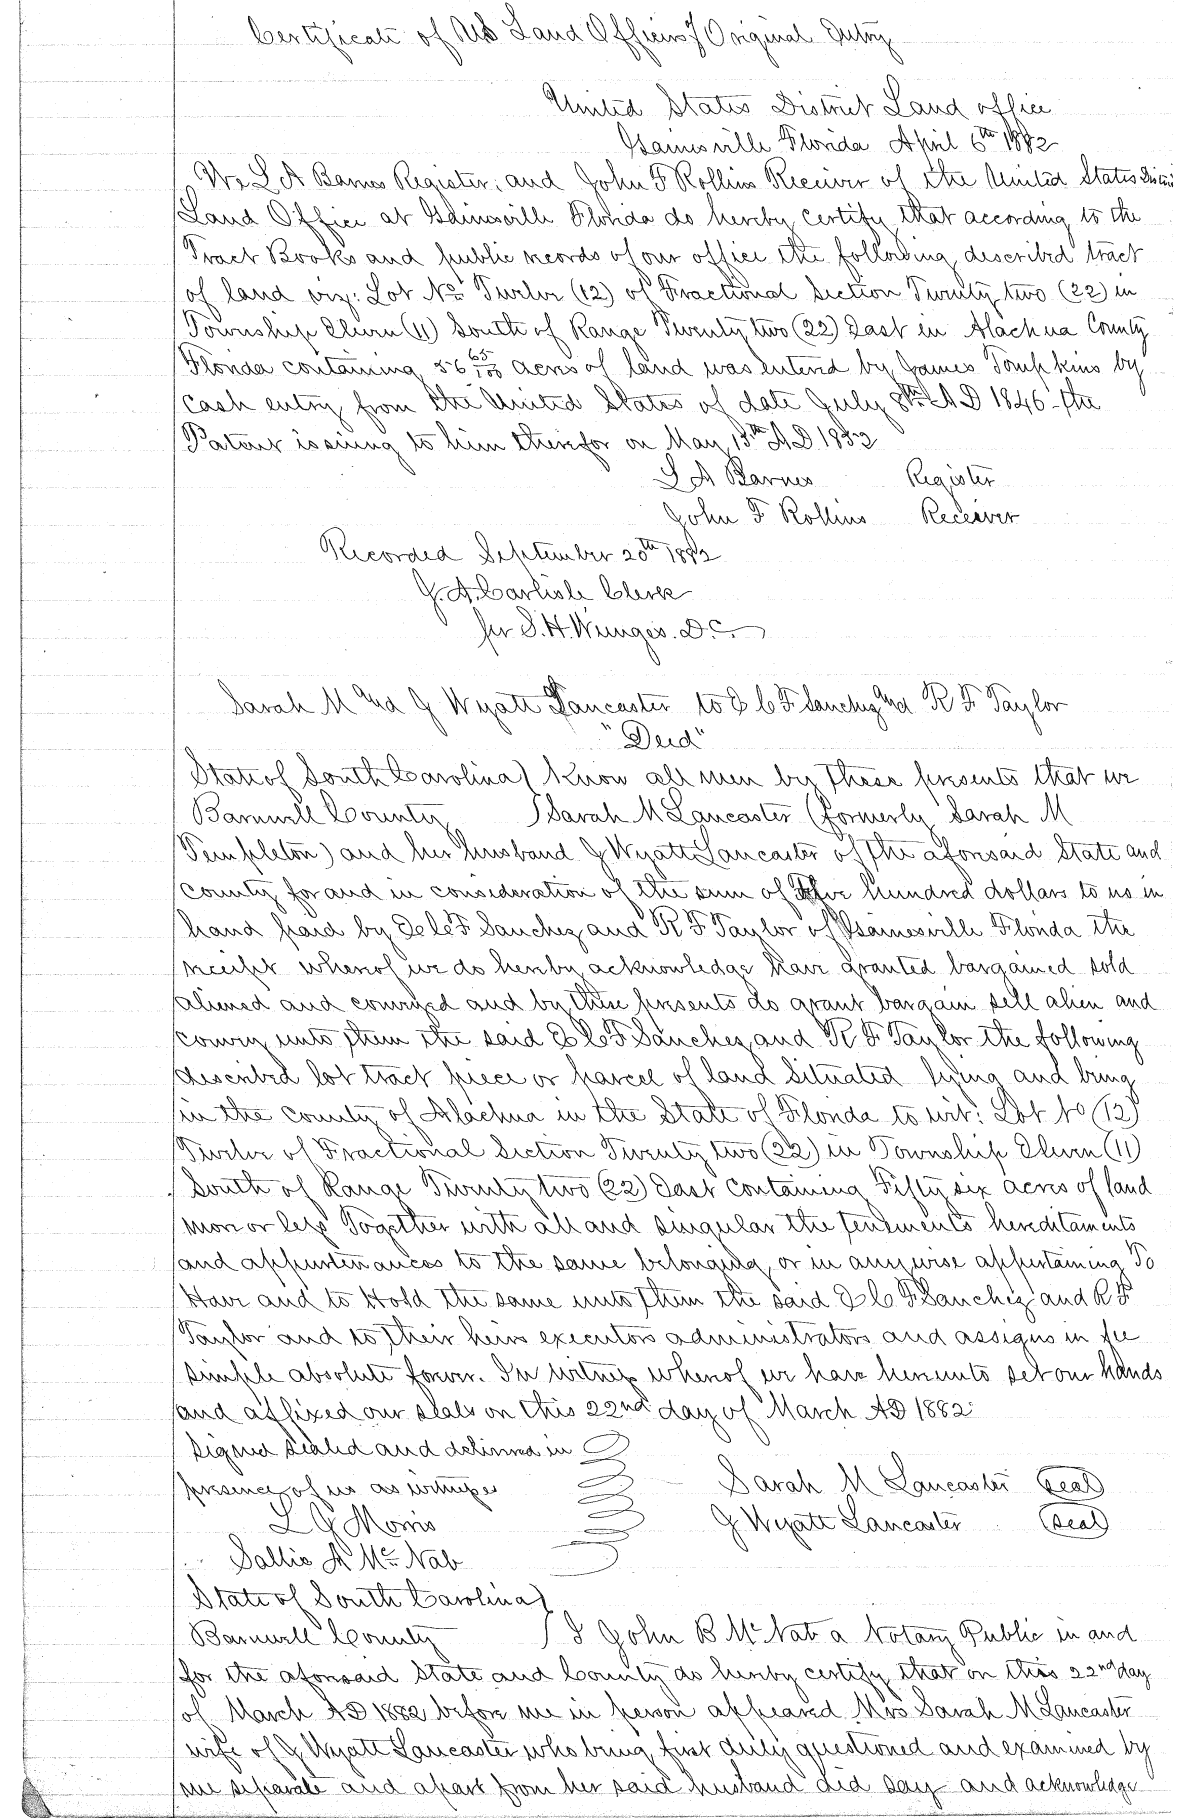 Certificate of US Land Officers of Original Entry
United States District Land office
Gainesville Florida April 6th 1882
We L A Barnes Register, and John F Rollins Receiver of the United States District
Land Office at Gainesville Florida do hereby certify that according to the
Tract Books and public records of our office the following described tract
of land viz: Lot No Twelve (12) of Fractional Section Twenty two (22) in
Township Eleven (11) South of Range Twenty two (22) East in Alachua County
Florida containing 56 65/100 acres of land was entered by James Tompkins by
cash entry from the United States of date July 8th A D 1846 - the
Patent issuing to him therefor on May 15th A D 1852
L A Barnes Register
John F Rollins Receiver
Recorded September 20th 1882
J. A. Carlisle Clerk
per S. H. Wienges. D.C.
Sarah M and J Wyatt Lancaster to E C F Sanchez and R F Taylor
"Deed"
State of South Carolina) Know all men by These presents that we
Barnwell County )Sarah M Lancaster (formerly Sarah M
Templeton) and her husband J Wyatt Lancaster of the aforesaid State and
County for and in consideration of the sum of five hundred dollars to us in
hand paid by E C F Sanchez and R F Taylor of Gainesville Florida the
receipt whereof we do hereby acknowledge have granted bargained sold
aliened and conveyed and by these presents do grant bargain sell alien and
convey unto them the said E C F Sanchez and R F Taylor the following
described lot tract piece or parcel of land situated lying and being
in the County of Alachua in the State of Florida to wit: Lot No (12)
Twelve of Fractional Section Twenty two (22) in Township Eleven (11)
South of Range Twenty two (22) East containing Fifty six acres of land
more or less Together with all and singular the tenements hereditaments
and appurtenances to the same belonging or in anywise appertaining To
Have and to Hold the same unto them the said E C F Sanchez and R F
Taylor and to their heirs executors administrators and assigns in fee
simple absolute forever. In witness whereof we have hereunto set our hands
and affixed our seals on this 22nd day of March AD 1882
Signed sealed and delivered in
presence of us as witnesses Sarah M Lancaster (seal)
L J Morris J Wyatt Lancaster (seal)
Sallie A McNab
State of South Carolina)
Barnwell County ) I John B McNab a Notary Public in and
for the aforesaid State and County do hereby certify that on this 22nd day
of March AD 1882 before me in person appeared Mrs Sarah M Lancaster
wife of J Wyatt Lancaster who being first duly questioned and examined by
me separate and apart from her said husband did say and acknowledge